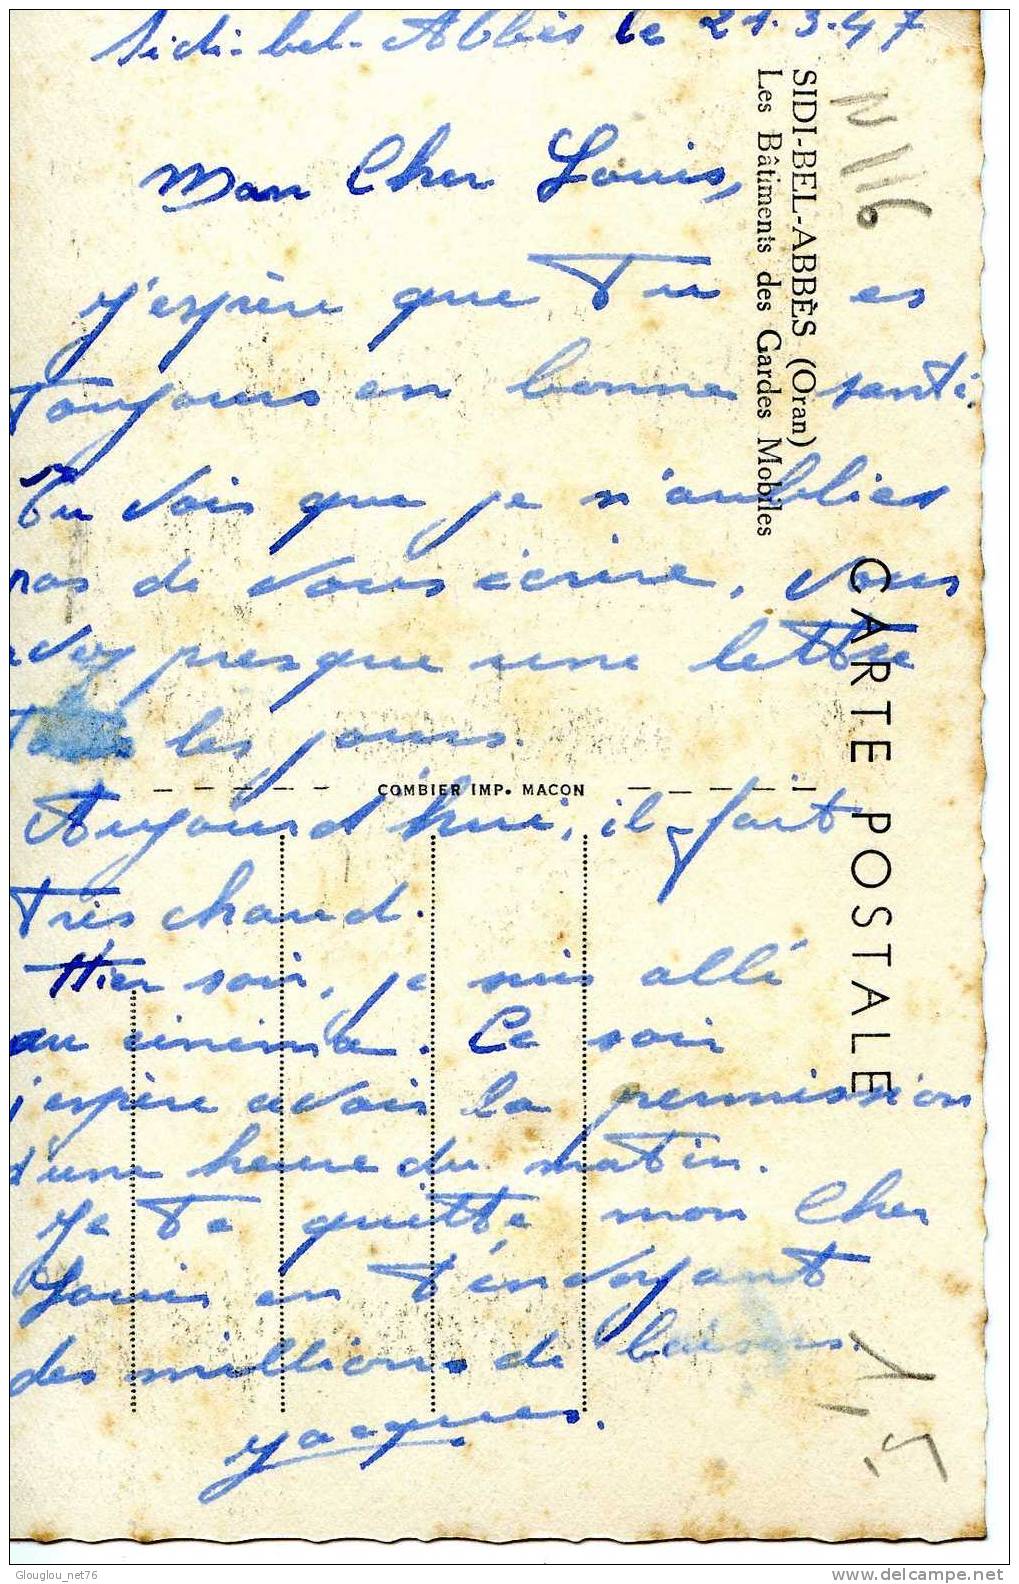 Sidi-bel-Abbès le 21.3.47
Mon Cher Louis,
j'espère que Tu es
Toujours en bonne santé.
Tu vois que je n'oublies
pas de vous écrire, vous
avez presque une lettre
Tous les jours.
Aujourd'hui, il fait
Très chaud.
Hier soir, je suis allé
au cinéma. Ce soir
j'espère avoir la permission
d'une heure du matin.
Je Te quitte mon Cher
Louis en T'envoyant
des millions de baisers.
Jacques.
SIDI-BEL-ABBÈS (Oran)
Les Bâtiments des Gardes Mobiles
CARTE POSTALE
COMBIER IMP. MACON
N 116
Glouglou_net76
delcampe.net